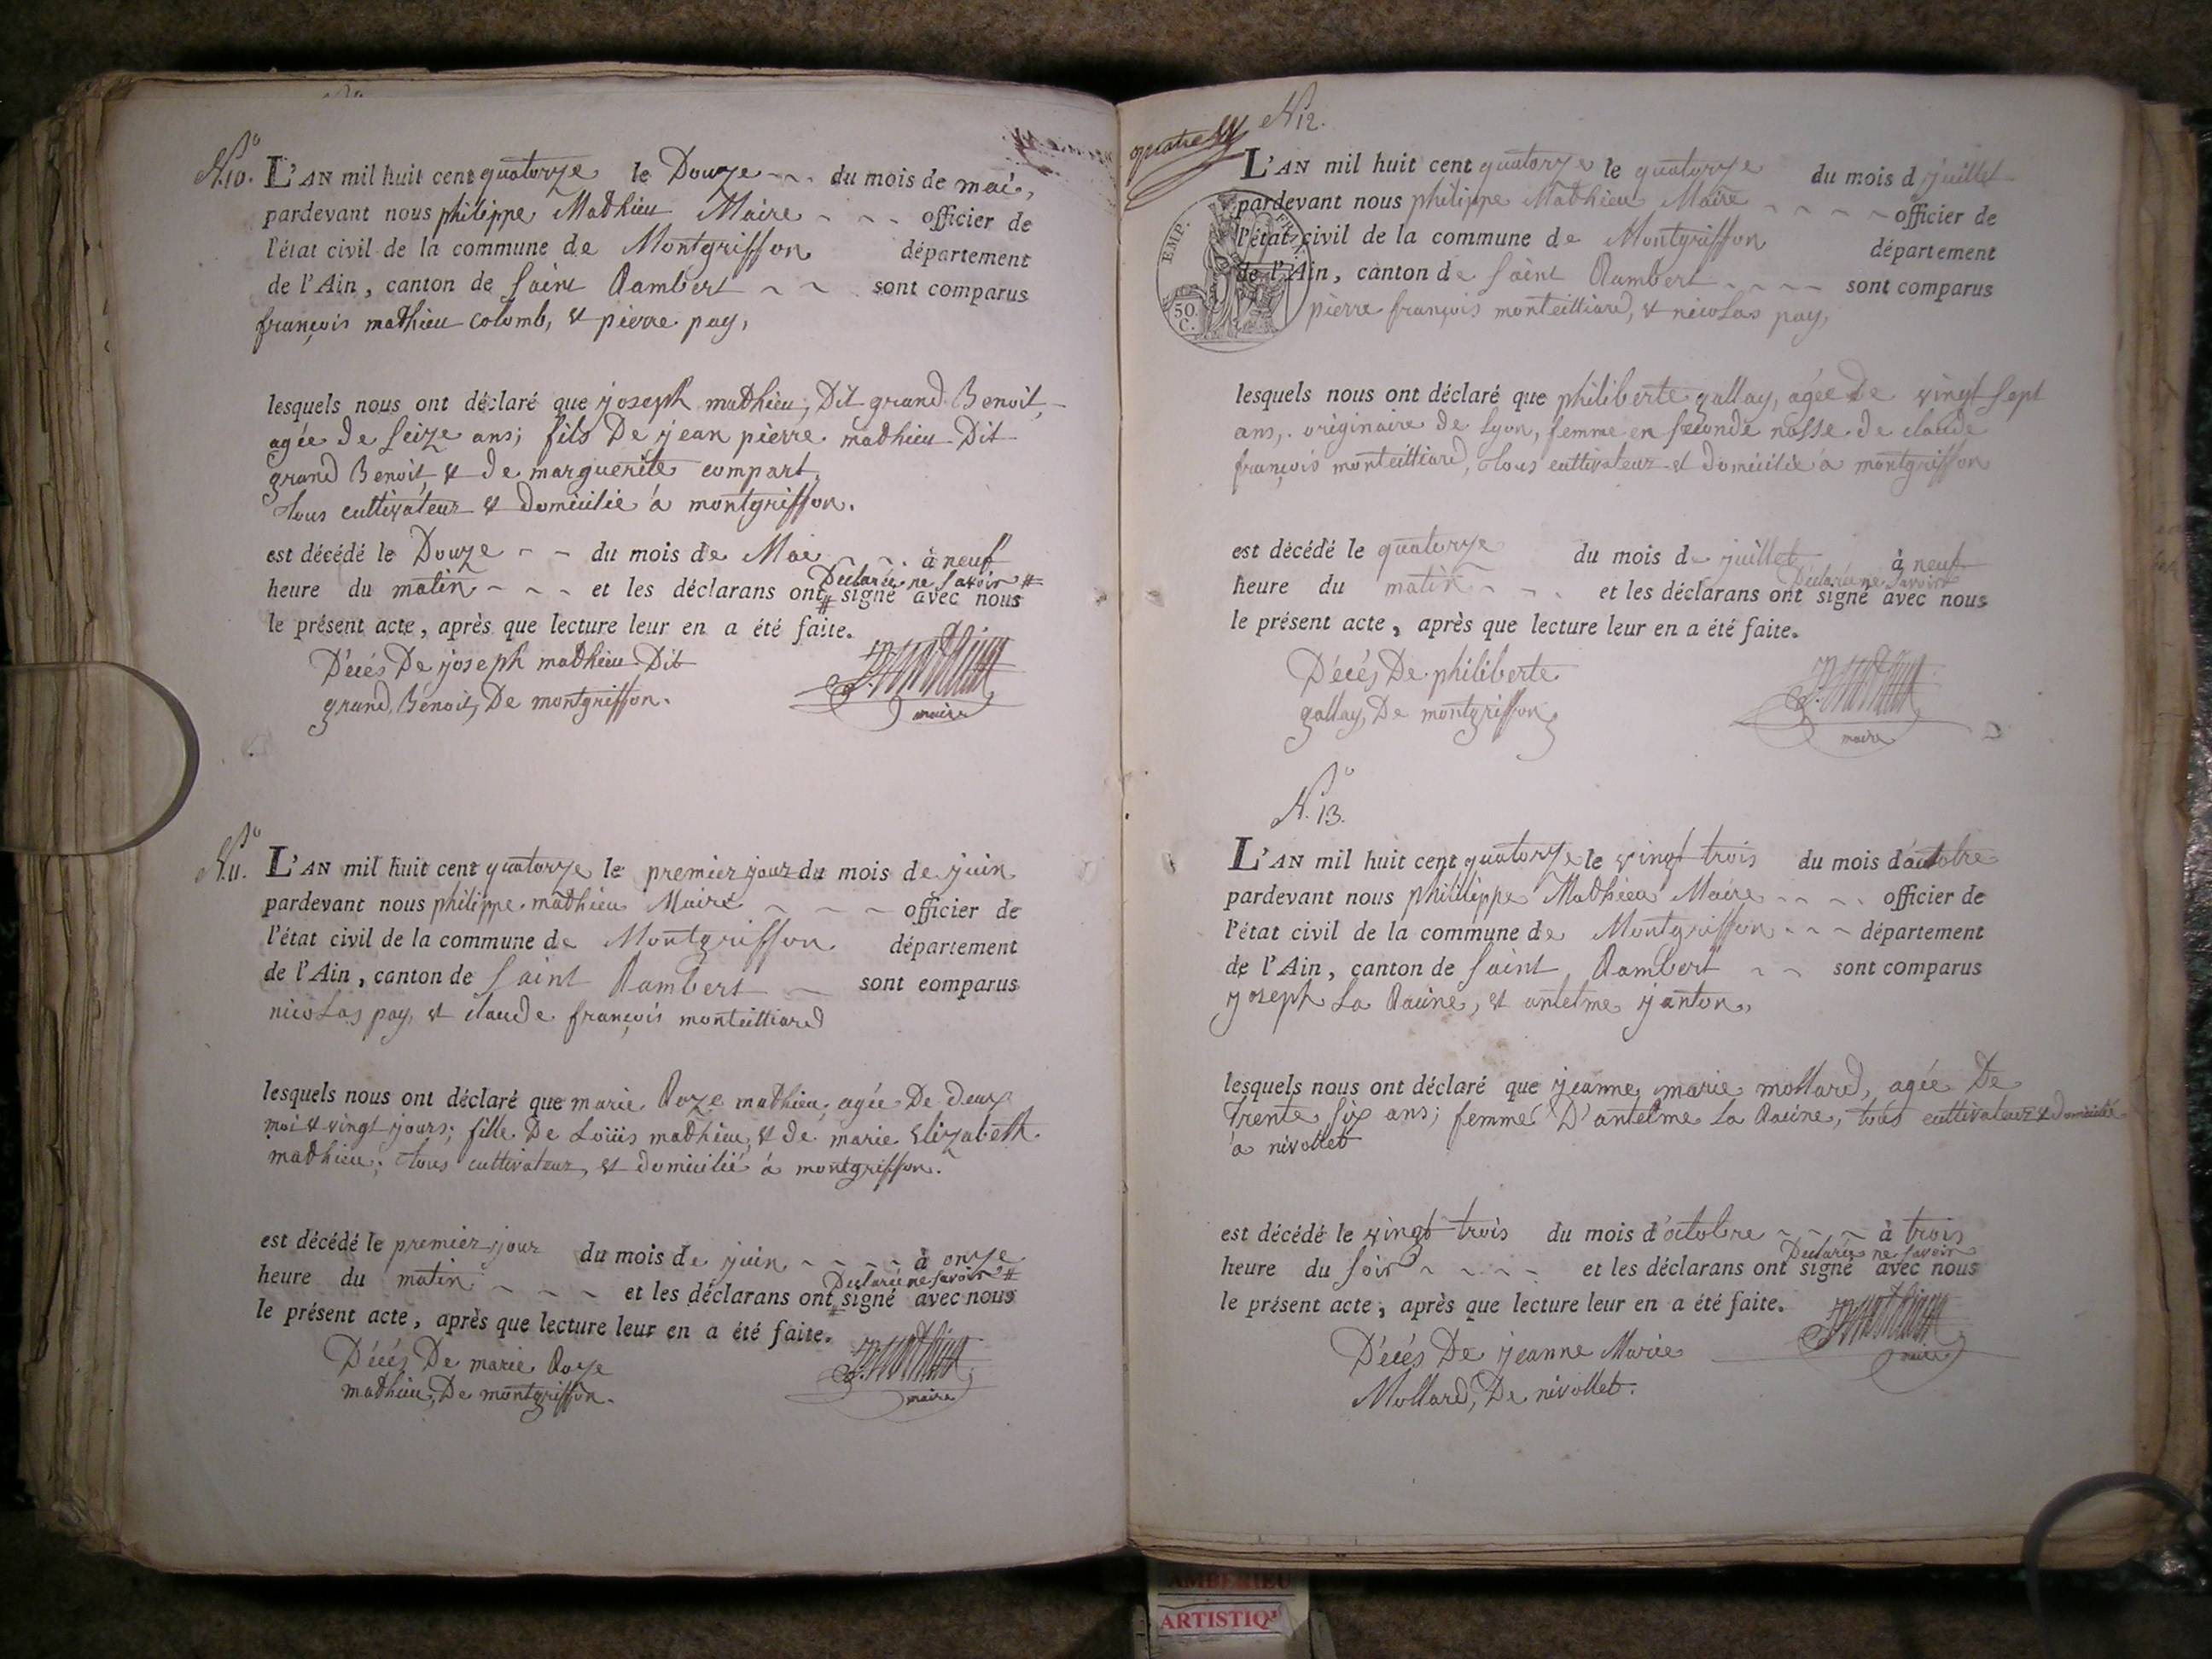 N.o 10. L'AN mil huit cent quatorze le Douze du mois de mai,
pardevant nous philippe Mathieu Maire officier de
l'état civil de la commune de Montgriffon département
de l'Ain, canton de saint Rambert sont comparus
françois mathieu colomb, & pierre pay,
lesquels nous ont déclaré que joseph mathieu, Dit grand Benoit,
agée de seize ans; fils De jean pierre mathieu Dit
grand Benoit, & de marguerite compart,
tous cultivateur & domicilié à montgriffon.
est décédé le Douze du mois de Mai à neuf
Déclarée ne savoir #
heure du matin et les déclarans ont # signé avec nous
le présent acte, après que lecture leur en a été faite.
Décés De joseph mathieu Dit
grand Benoit, De montgriffon.
P. mathieu
maire
N.o 11. L'AN mil huit cent quatorze le premier jour du mois de juin
pardevant nous philippe mathieu Maire officier de
l'état civil de la commune de Montgriffon département
de l'Ain, canton de saint Rambert sont comparus
nicolas pay, & claude françois monteilliard
lesquels nous ont déclaré que marie Roze mathieu, agée De deux
moi & vingt jours; fille De Loüis mathieu, & de marie Elizabeth
mathieu; tous cultivateur, & domicilié à montgriffon.
est décédé le premier jour du mois de juin à onze
Déclarée ne savoir #
heure du matin et les déclarans ont # signé avec nous
le présent acte, après que lecture leur en a été faite.
Décés De marie Roze
mathieu, De montgriffon.
P. mathieu
maire
quatre
N 12.
L'AN mil huit cent quatorze le quatorze du mois d juillet
pardevant nous philippe Mathieu Maire officier de
l'état civil de la commune de Montgriffon département
de l'Ain, canton de saint Rambert sont comparus
pierre françois monteilliard, & nicolas pay,
EMP. FR.
50.
C.
lesquels nous ont déclaré que philiberte gallay, agée de vingt sept
ans, originaire de Lyon, femme en seconde nosse de claude
françois monteilliard, tous cultivateur & domicilié à montgriffon
est décédé le quatorze du mois de juillet à neuf
Déclarée ne savoir
heure du matin et les déclarans ont signé avec nous
le présent acte, après que lecture leur en a été faite.
Décés De philiberte
gallay, De montgriffon
P. mathieu
maire
N.o 13.
L'AN mil huit cent quatorze le vingt trois du mois d'octobre
pardevant nous philippe Mathieu Maire officier de
l'état civil de la commune de Montgriffon département
de l'Ain, canton de saint Rambert sont comparus
joseph La Racine, & antelme janton,
lesquels nous ont déclaré que jeanne marie mollard, agée De
trente six ans; femme D'antelme La Racine, tous cultivateur & domicilié
à nivollet
est décédé le vingt trois du mois d'octobre à trois
Déclarée ne savoir
heure du soir et les déclarans ont signé avec nous
le présent acte, après que lecture leur en a été faite.
Décés De jeanne Marie
Mollard, De nivollet.
P. mathieu
maire
AMBERIEU
ARTISTIQ